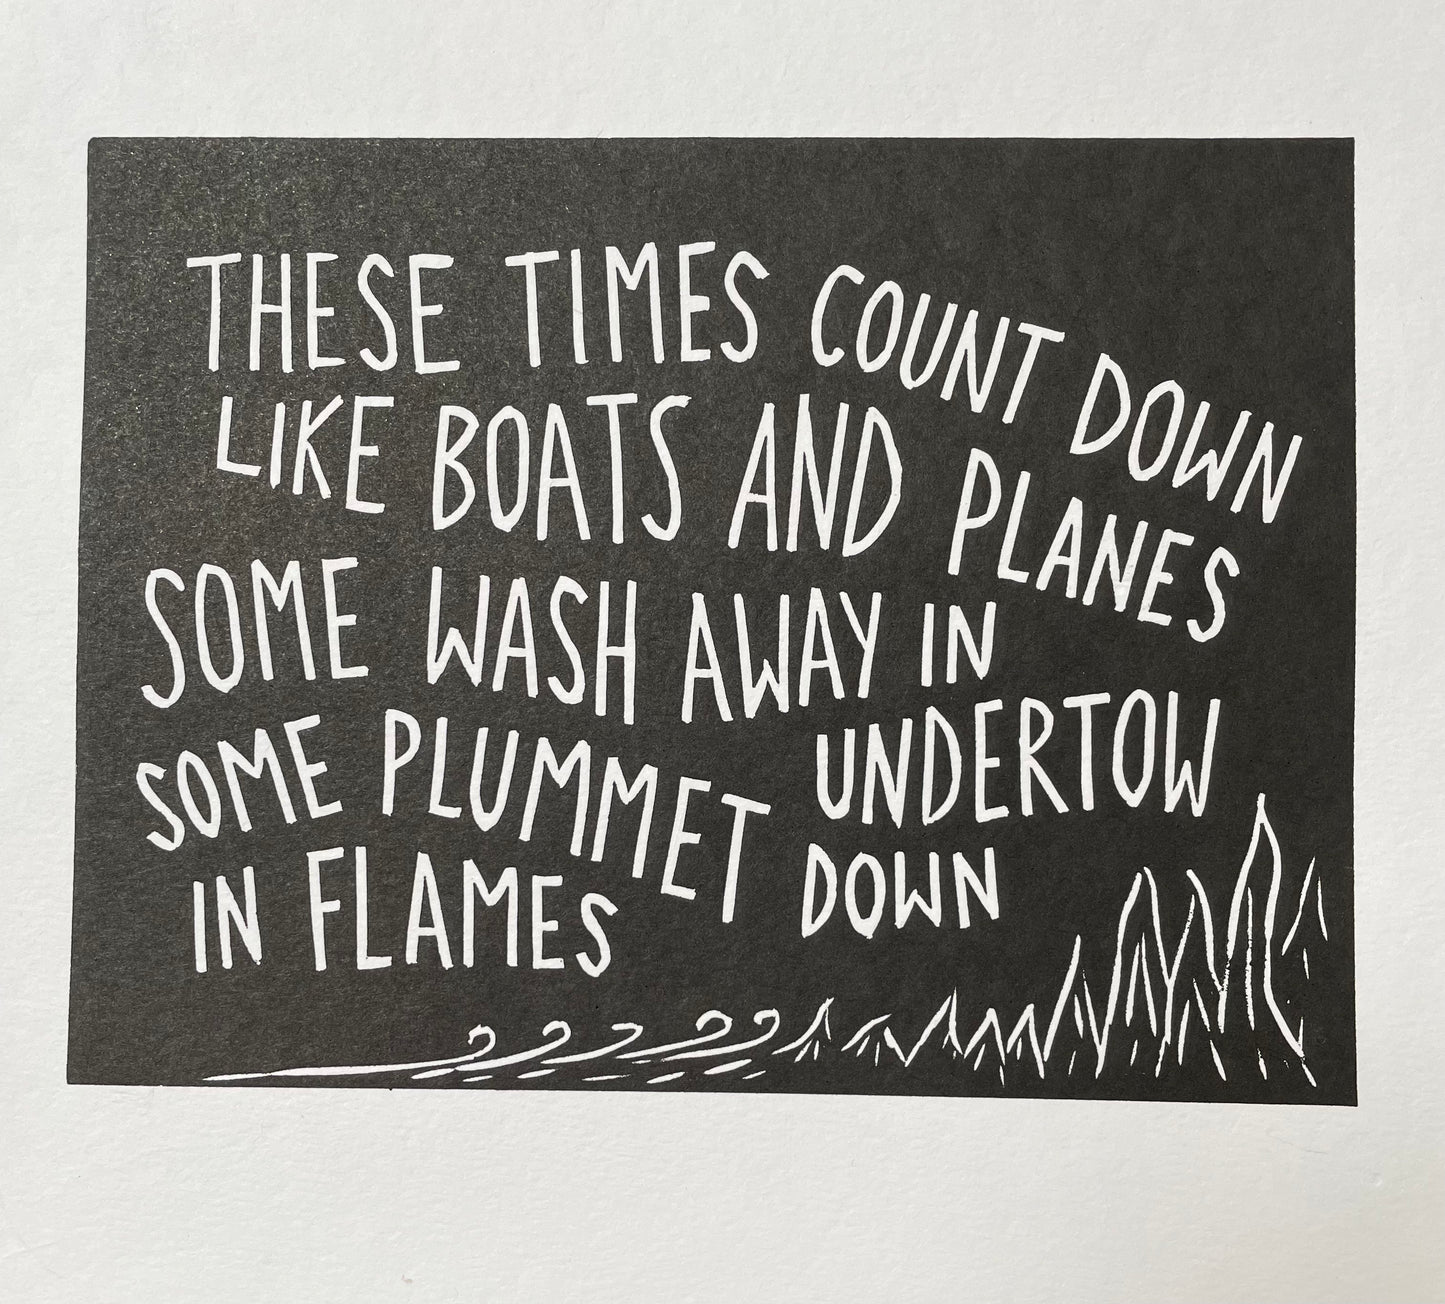 THESE TIMES COUNT DOWN
LIKE BOATS AND PLANES
SOME WASH AWAY IN
UNDERTOW
SOME PLUMMET DOWN
IN FLAMES